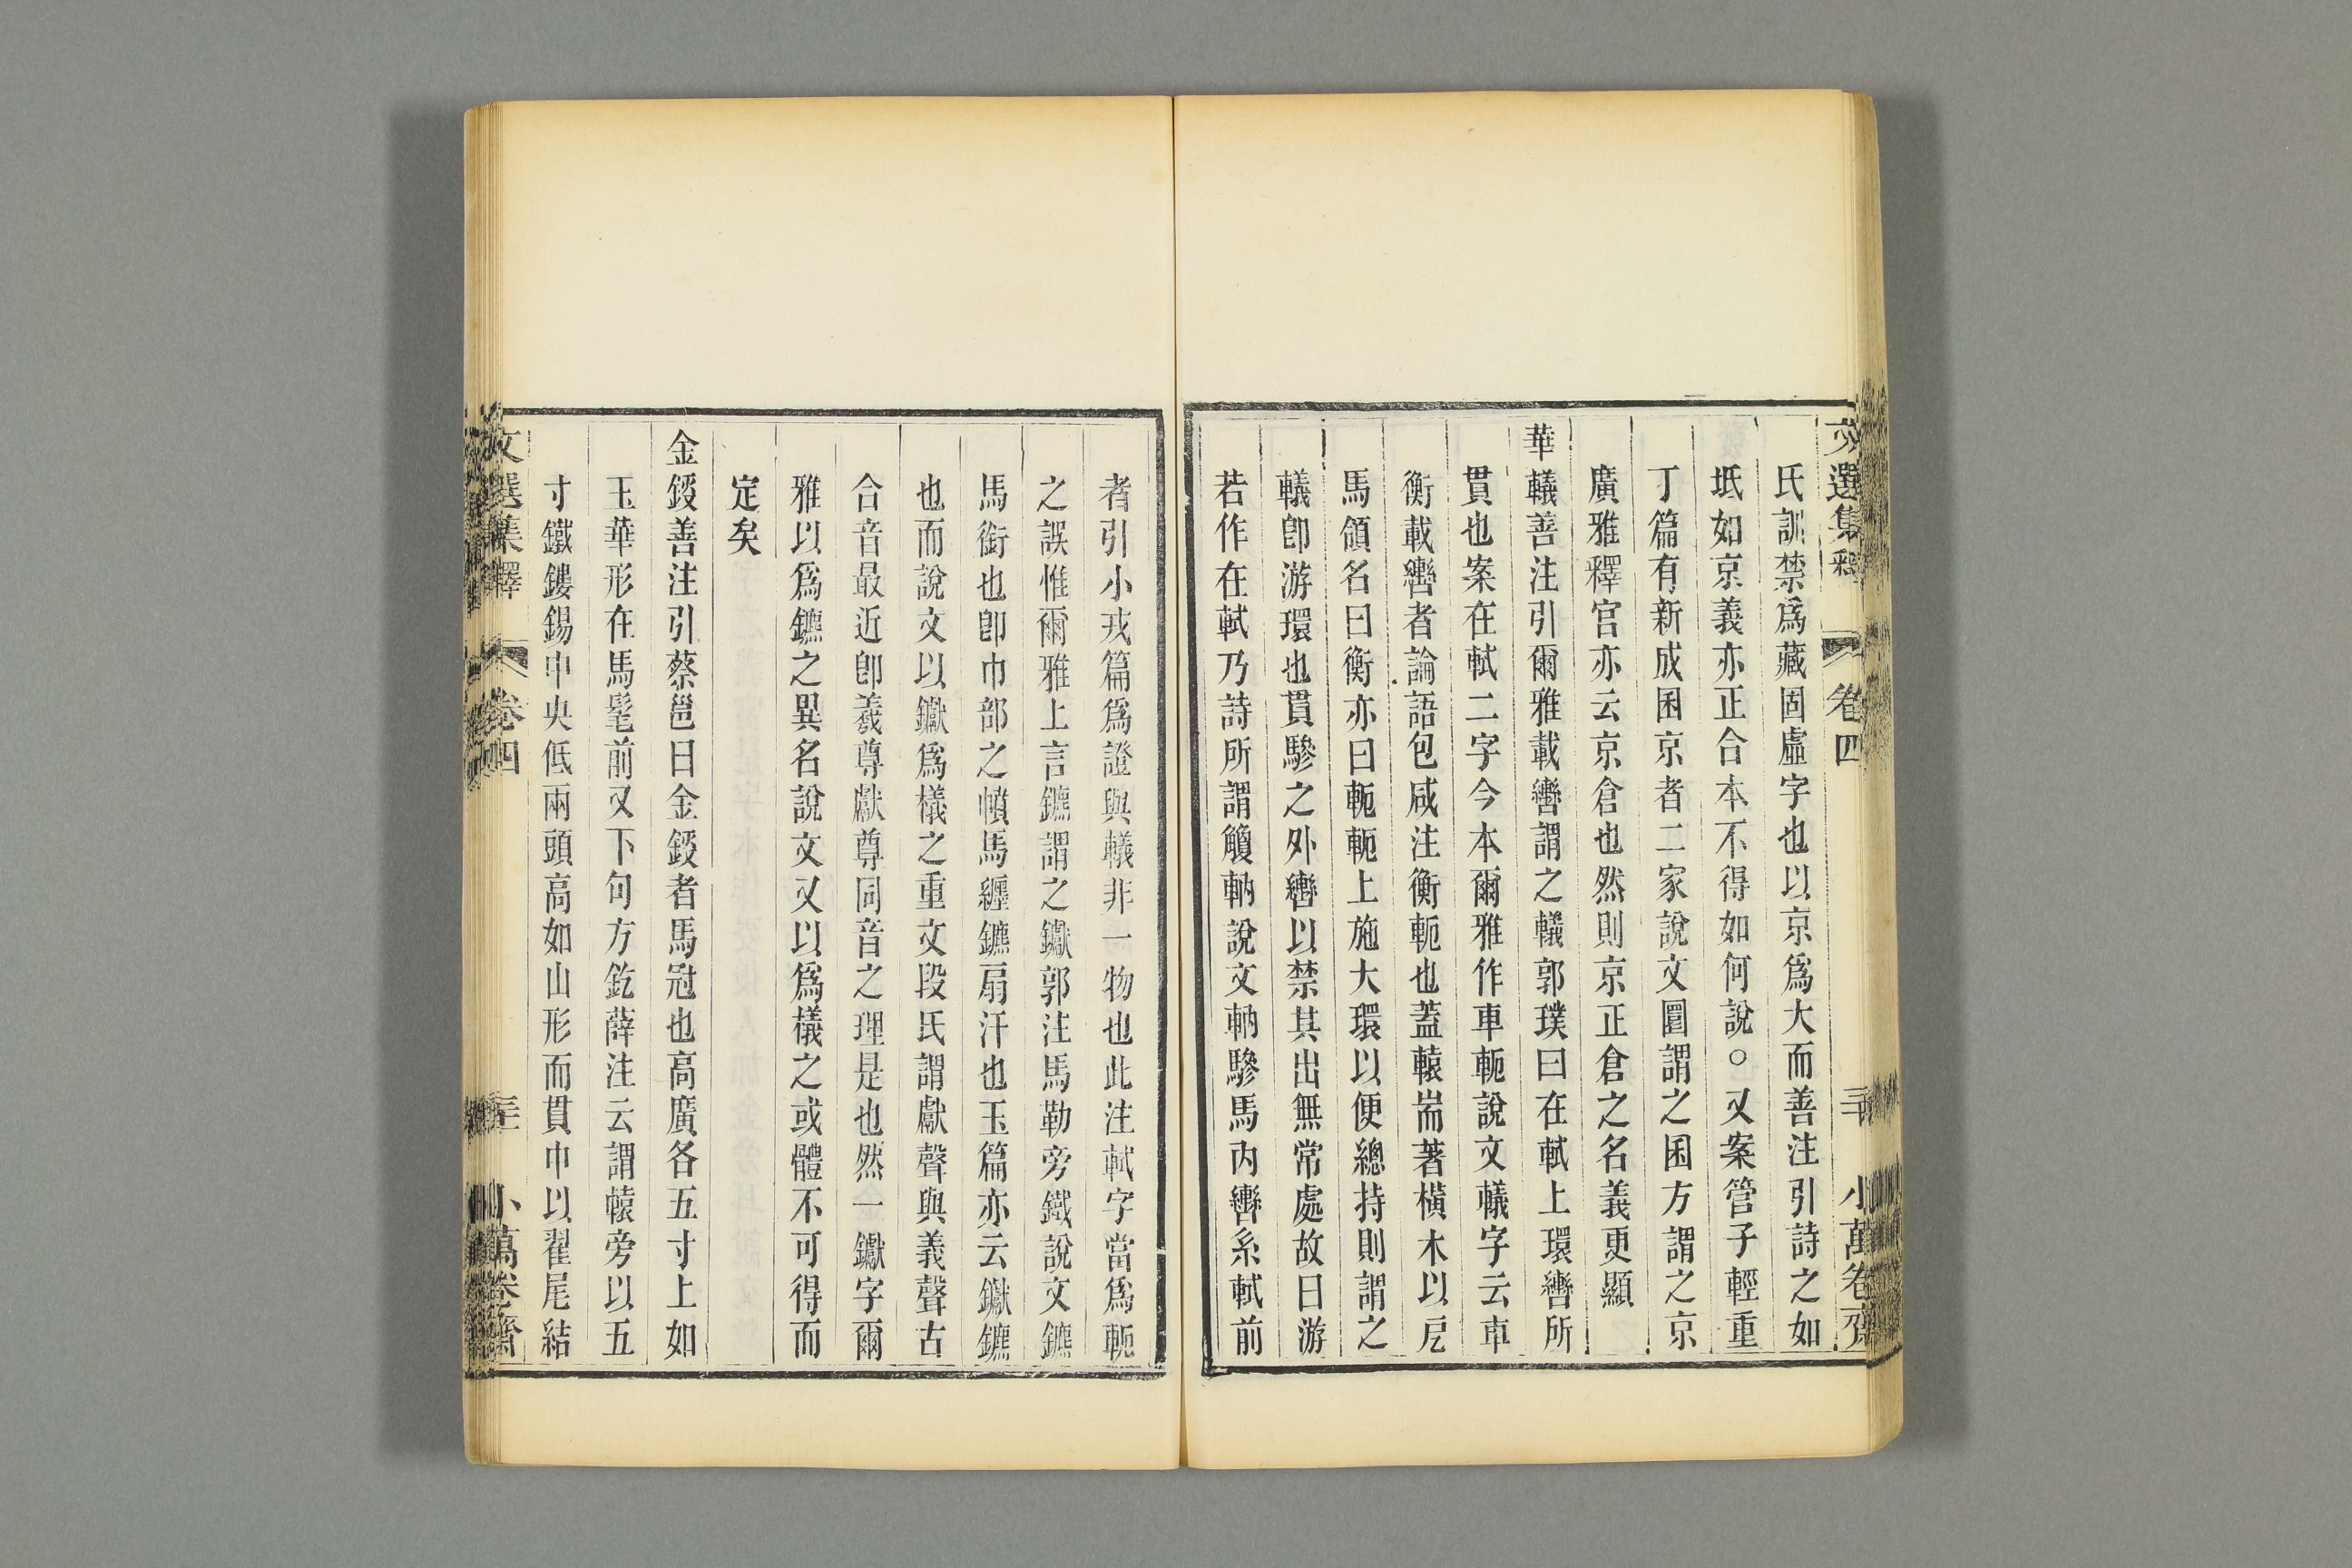 文選集釋 卷四 三十 小萬卷齋
氏訓禁爲藏固虛字也以京爲大而善注引詩之如
坻如京義亦正合本不得如何說○又案管子輕重
丁篇有新成囷京者二家說文圜謂之囷方謂之京
廣雅釋宮亦云京倉也然則京正倉之名義更顯
華轙善注引爾雅載轡謂之轙郭璞曰在軾上環轡所
貫也案在軾二字今本爾雅作車軛說文轙字云車
衡載轡者論語包咸注衡軛也蓋轅耑著橫木以戹
馬領名曰衡亦曰軛軛上施大環以便總持則謂之
轙卽游環也貫驂之外轡以禁其出無常處故曰游
若作在軾乃詩所謂觼軜說文軜驂馬內轡系軾前
者引小戎篇爲證與轙非一物也此注軾字當爲軛
之誤惟爾雅上言鑣謂之钀郭注馬勒旁鐵說文鑣
馬銜也卽巾部之幩馬纏鑣扇汗也玉篇亦云钀鑣
也而說文以钀爲轙之重文段氏謂獻聲與義聲古
合音最近卽羲尊獻尊同音之理是也然一钀字爾
雅以爲鑣之異名說文又以爲轙之或體不可得而
定矣
金鋄善注引蔡邕曰金鋄者馬冠也高廣各五寸上如
玉華形在馬髦前又下句方釳薛注云謂轅旁以五
寸鐵鏤錫中央低兩頭高如山形而貫中以翟尾結
文選集釋 卷四 三十 小萬卷齋